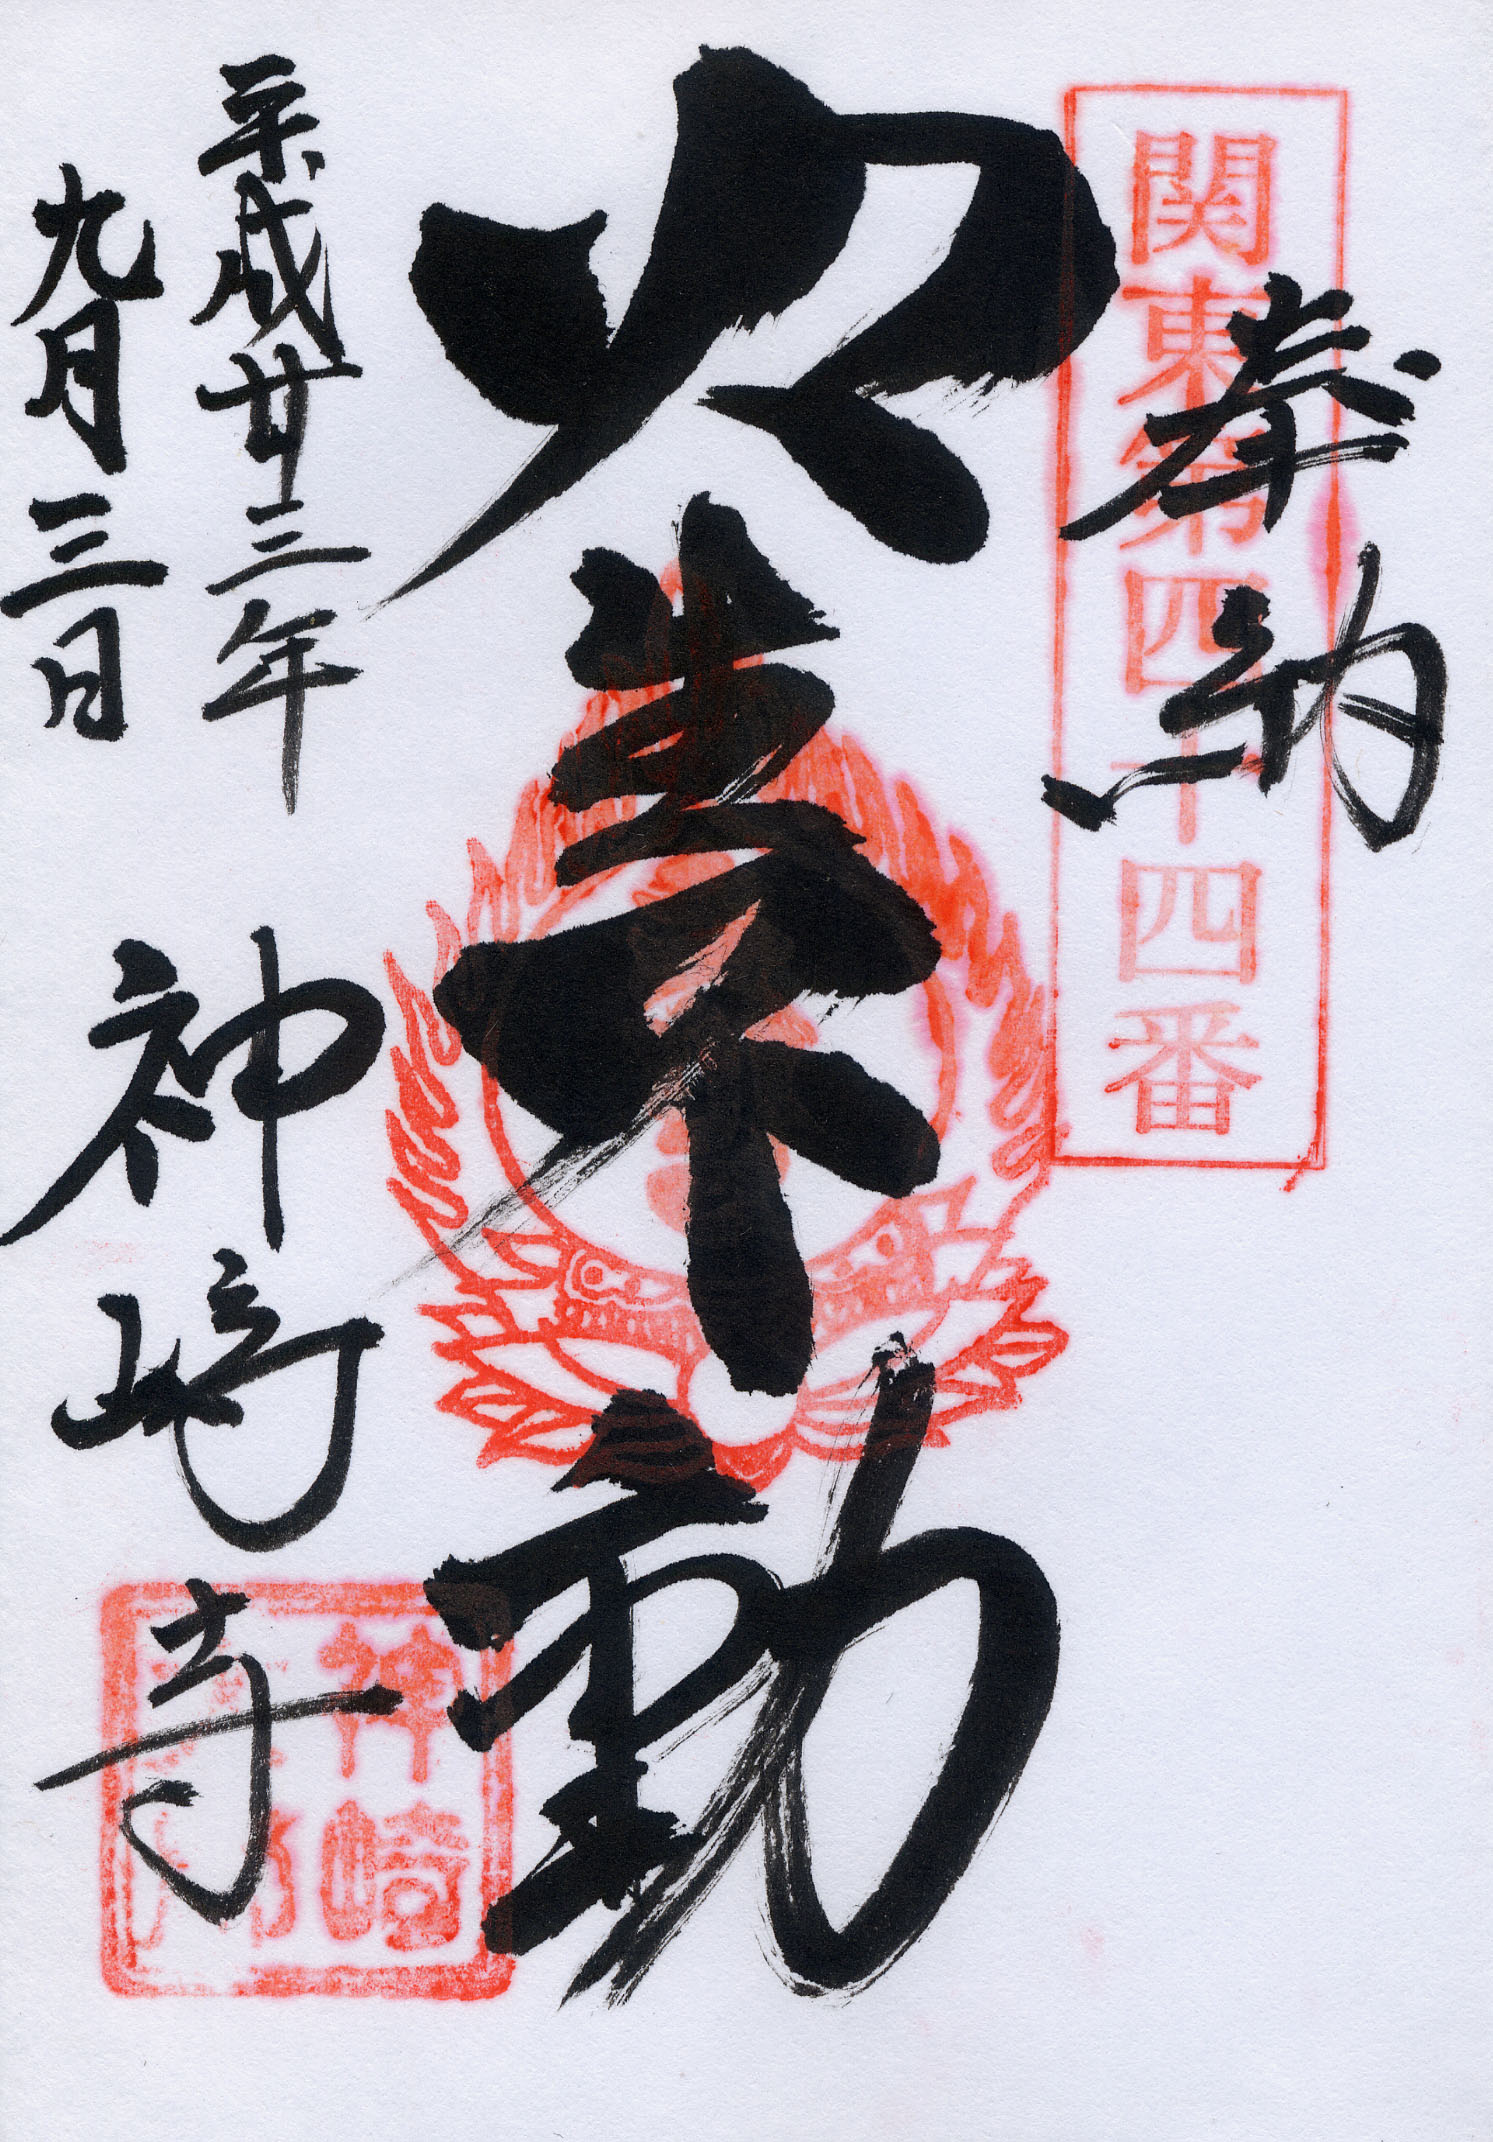 奉納
関東第四十四番
火葉不動
平成廿三年
九月三日
神崎寺
神崎